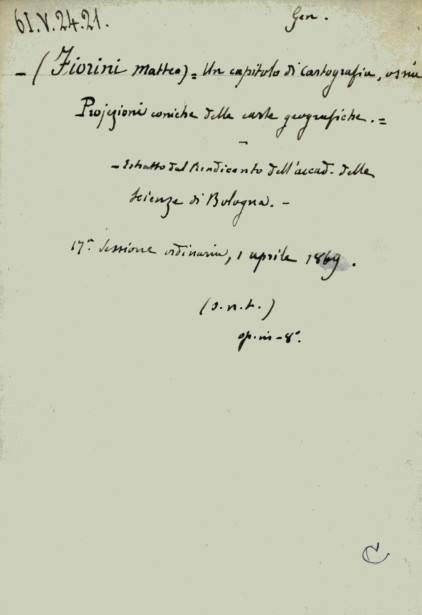 61.V.24.21.
Gen.
- (Fiorini Matteo) = Un capitolo di Cartografia, ossia
Projezioni coniche delle carte geografiche. =
- Estratto dal Rendiconto dell'accad. delle
Scienze di Bologna. -
17ª Sessione ordinaria, 1 aprile 1869.
(s.n.t.)
op. in-8°.
C